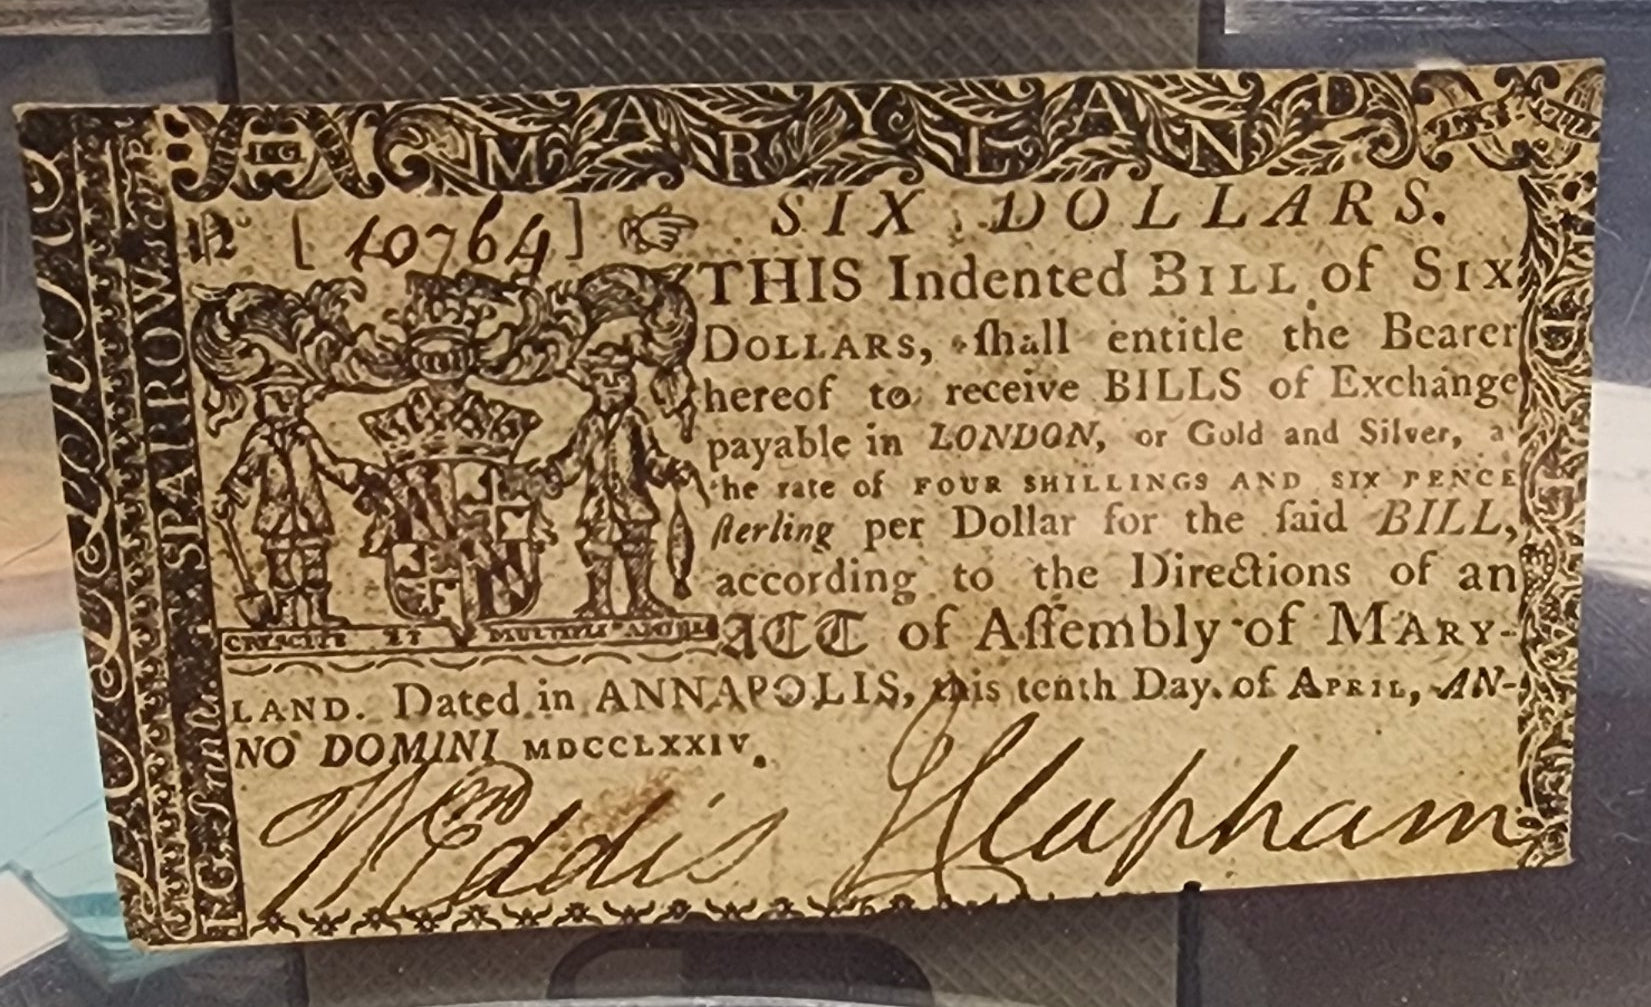 MARYLAND
I·G·
Nº [10764] ☞ SIX DOLLARS.
THIS Indented BILL of SIX
DOLLARS, ſhall entitle the Bearer
hereof to receive BILLS of Exchange
payable in LONDON, or Gold and Silver, a
he rate of FOUR SHILLINGS AND SIX PENCE
ſterling per Dollar for the ſaid BILL,
according to the Directions of an
ACT of Aſſembly of MARY-
LAND. Dated in ANNAPOLIS, this tenth Day of APRIL, AN-
NO DOMINI MDCCLXXIV.
CRESCITE ET MULTIPLICAMINI
Wm Eddis J Clapham
SPARROW